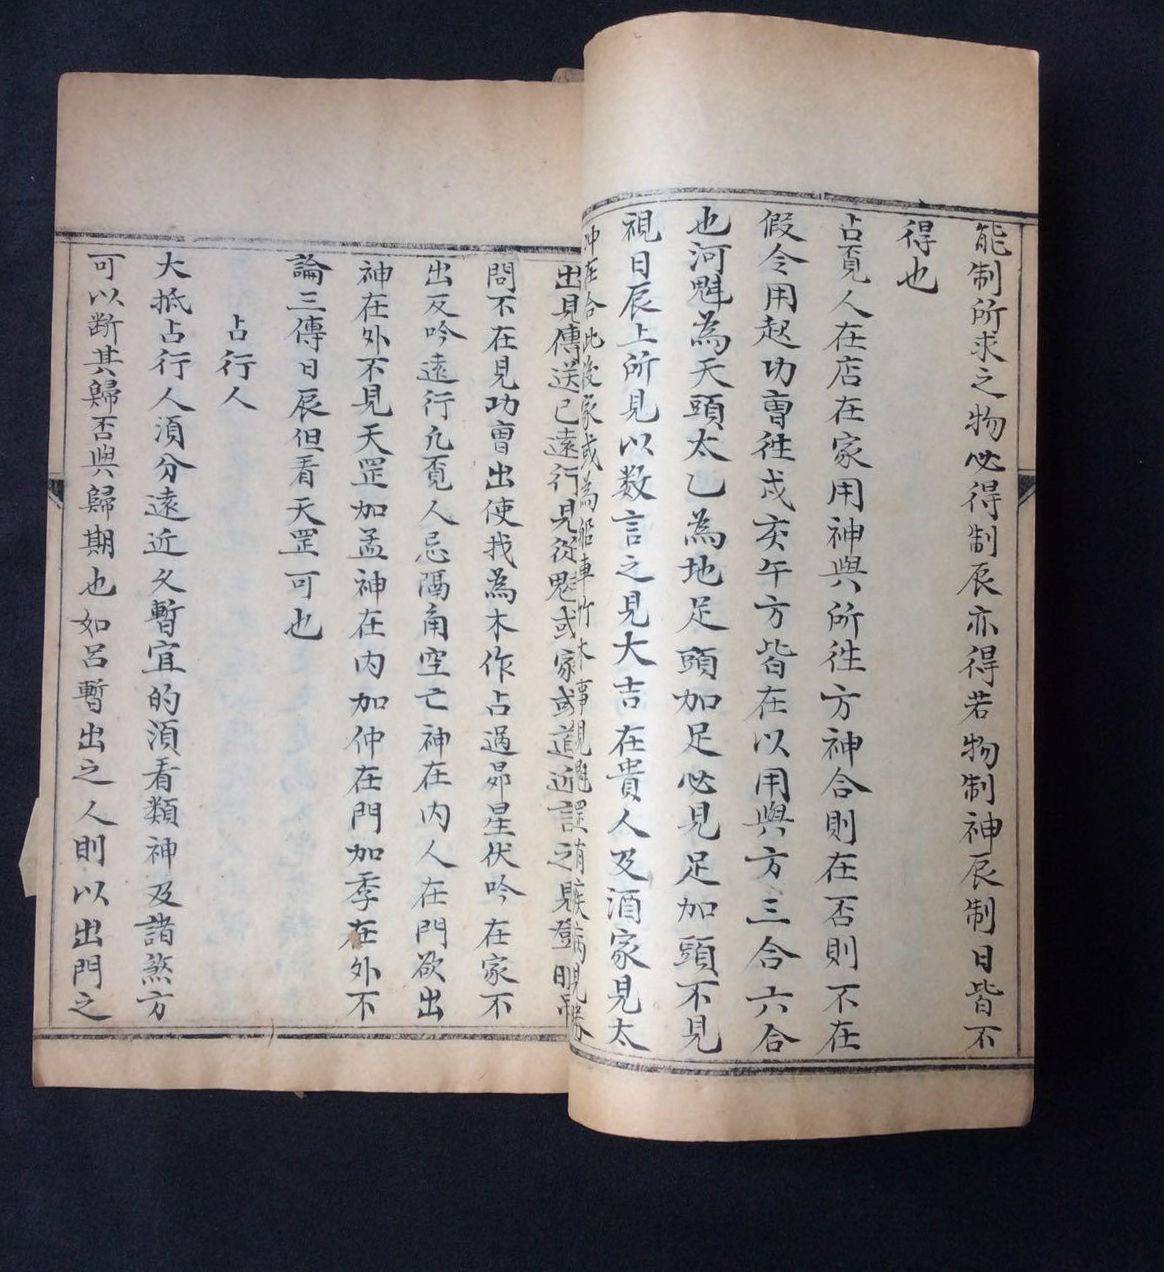 能制所求之物必得制辰亦得若物制神辰制日皆不
得也
占覓人在店在家用神與所往方神合則在否則不在
假令用起功曹往戌亥午方皆在以用與方三合六合
也河魁為天頭太乙為地足頭加足必見足加頭不見
視日辰上所見以数言之見大吉在貴人及酒家見太
冲在合此後家或為船車竹木事
出見傳送已遠行見從魁或家或道近
問不在見功曹出使我為木作占過昴星伏吟在家不
出反吟遠行凢覓人忌隔角空亡神在内人在門欲出
神在外不見天罡加孟神在内加仲在門加季在外不
論三傳日辰但看天罡可也
占行人
大抵占行人湏分遠近久暫宜的湏看類神及諸煞方
可以断其歸否與歸期也如吕暫出之人則以出門之